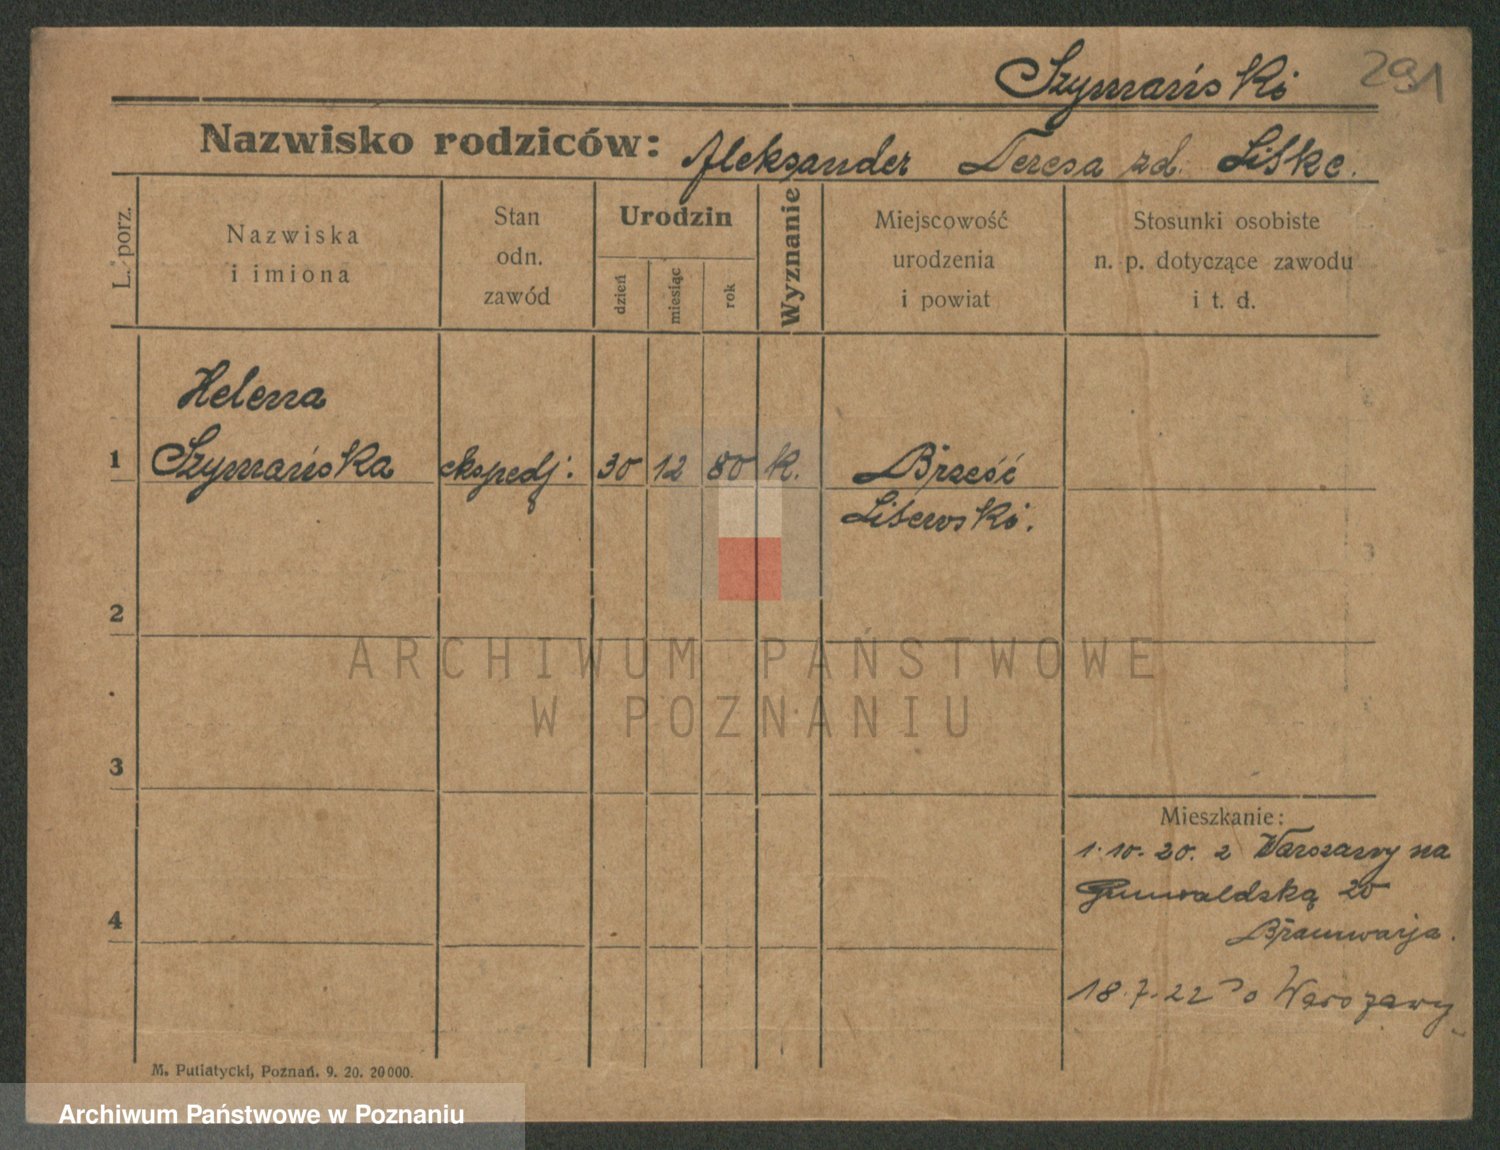 Szymański 291
Nazwisko rodziców: Aleksander Teresa zd. Liske.
L. porz.
Nazwiska
i imiona
Stan
odn.
zawód
Urodzin
dzień
miesiąc
rok
Wyznanie
Miejscowość
urodzenia
i powiat
Stosunki osobiste
n. p. dotyczące zawodu
i t. d.
Helena
1 Szymańska ekspedj: 30 12 80 k. Brześć
Litewski.
2
ARCHIWUM PAŃSTWOWE
W POZNANIU
3
Mieszkanie:
1. 10. 20. z Warszawy na
Grunwaldzką 20
4
18. 7. 22 Do Warszawy
M. Putiatycki, Poznań. 9. 20. 20000.
Archiwum Państwowe w Poznaniu